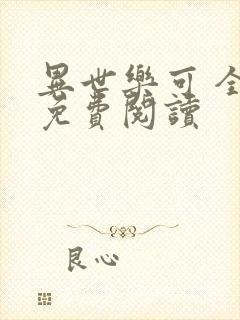 異世樂可全
免費閱讀
良心